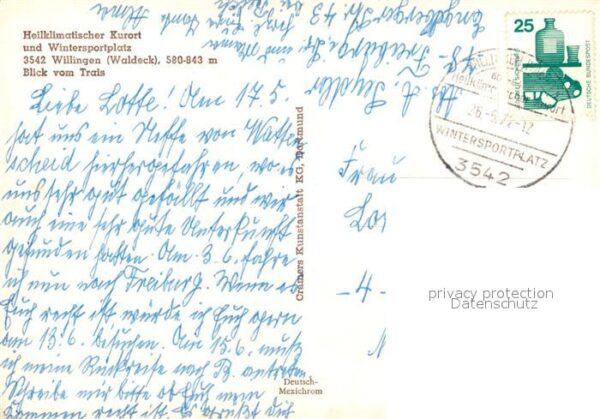 Heilklimatischer Kurort
und Wintersportplatz
3542 Willingen (Waldeck), 580-843 m
Blick vom Trais
Liebe Lotte! Am 17.5.
hat uns ein Neffe von Watten
scheid hierhergefahren, wo es
uns sehr gut gefällt und wir
auch eine sehr gute Unterkunft
gefunden hatten. Am 3.6. fahre
ich nun nach Freiburg. Wenn es
Euch recht ist würde ich Euch gern
am 13.6. besuchen. Am 15.6. muß
ich meine Rückreise nach B. antreten
Schreibe mir bitte ob Euch mein
Kommen recht ist. Es grüßt Dich
Anna
78 Freiburg
Cramers Kunstanstalt KG, Dortmund
Deutsch-
Mexichrom
25
DEUTSCHE BUNDESPOST
WINTERSPORTPLATZ
3542
Frau
Lo
-4-
privacy protection
Datenschutz